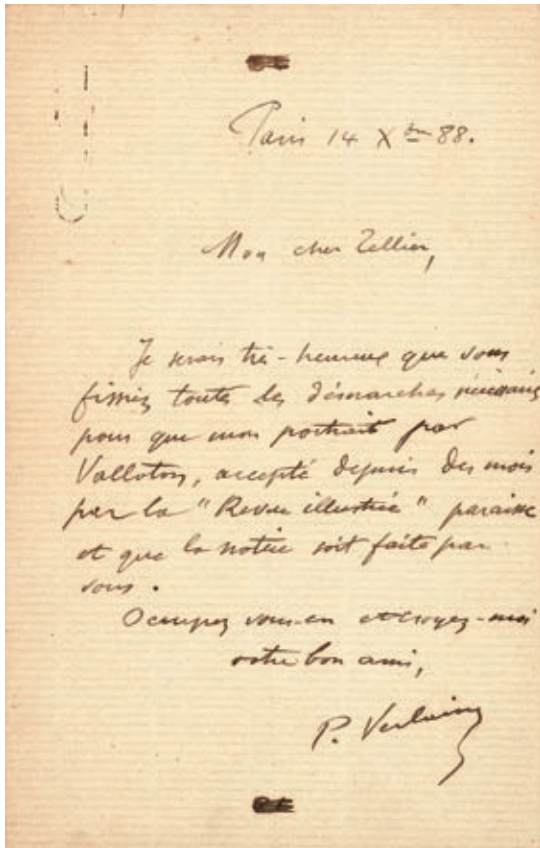 Paris 14 Xbre 88.
Mon cher Tellier,
Je serais très-heureux que vous
fissiez toutes les démarches nécessaires
pour que mon portrait par
Vallotton, accepté depuis des mois
par la "Revue illustrée" paraisse
et que la notice soit faite par
vous.
Occupez vous-en et croyez-moi
votre bon ami,
P. Verlaine